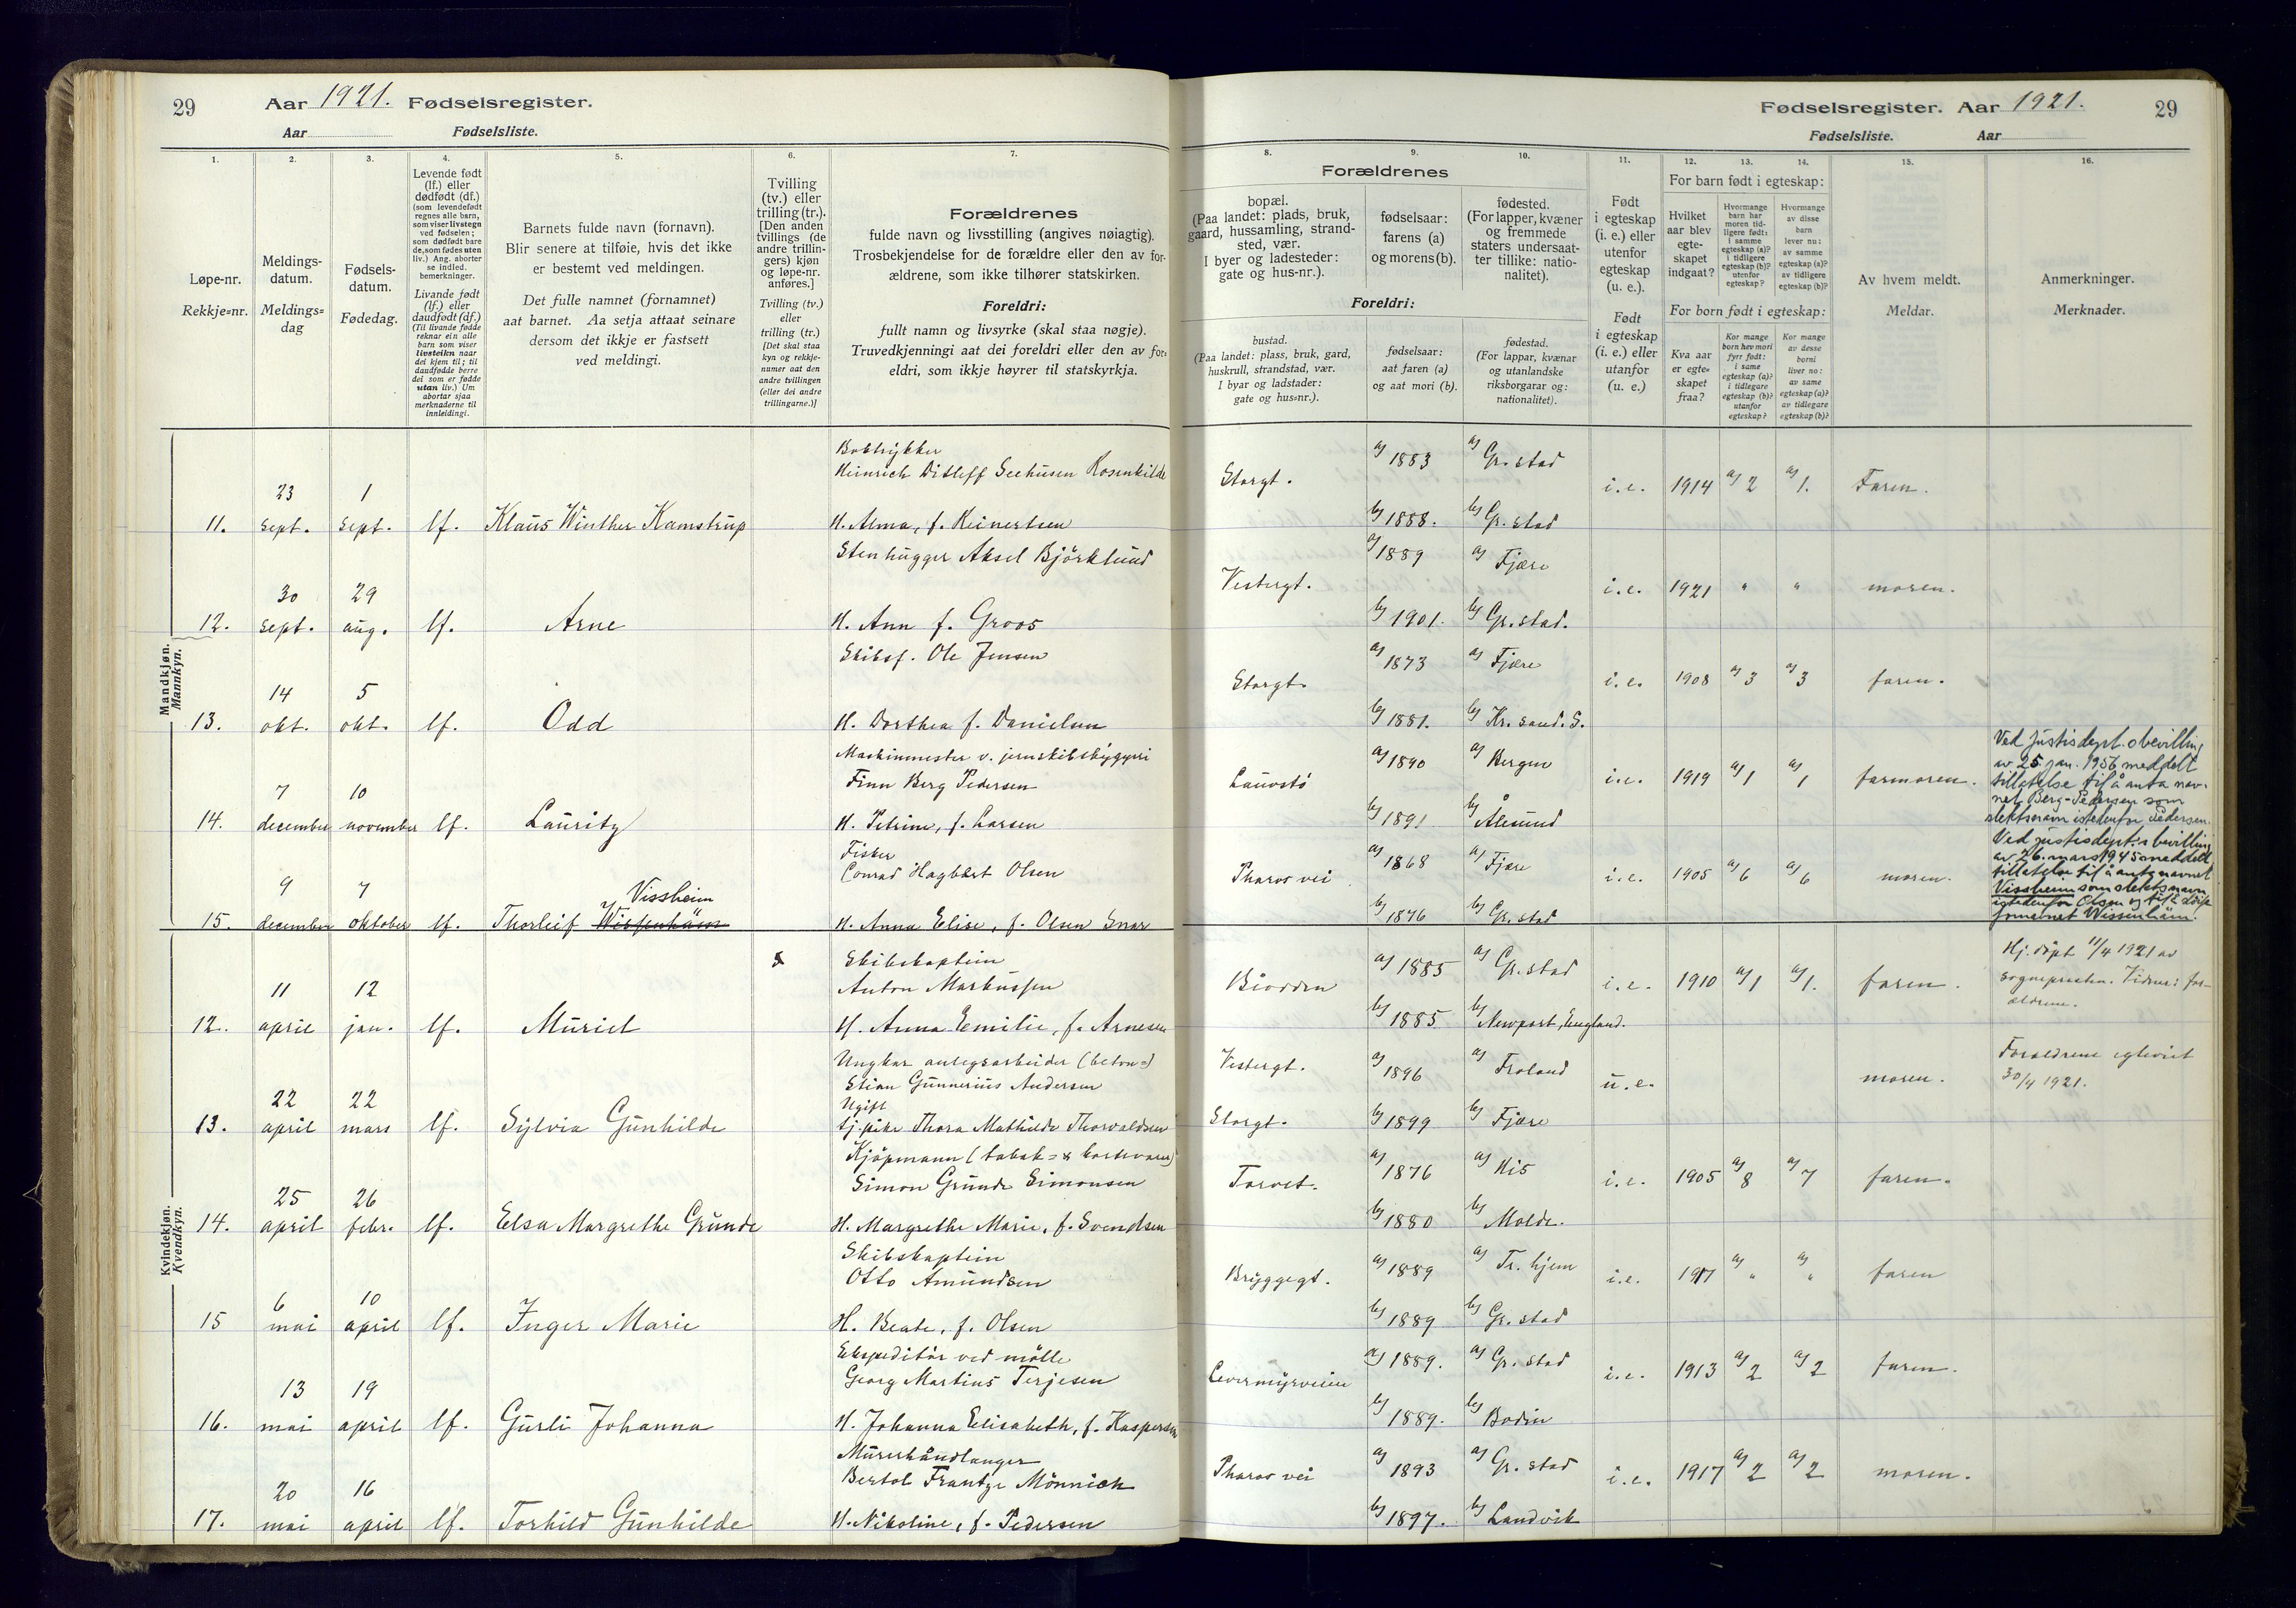 29 Aar 1921. Fødselsregister.
Aar Fødselsliste.
Fødselsregister. Aar 1921. 29
Fødselsliste. Aar
1. 2. 3. 4. 5. 6. 7.
Løpe-nr.
Rekkje=nr.
Meldings-
datum.
Meldings=
dag
Fødsels-
datum.
Fødedag.
Levende født
(lf.) eller
dødfødt (df.)
(som levendefødt
regnes alle barn,
som viser livstegn
ved fødselen;
som dødfødt bare
de, som fødes uten
liv.) Ang. aborter
se indled.
bemerkninger.
Livande født
(lf.) eller
daudfødt (df.)
(Til livande fødde
reknar ein alle
barn som viser
livsteikn naar
dei kjem til; til
daudfødde berre
dei som er fødde
utan liv.) Um
abortar sjaa
merknaderne til
innleidingi.
Barnets fulde navn (fornavn).
Blir senere at tilføie, hvis det ikke
er bestemt ved meldingen.
Det fulle namnet (fornamnet)
aat barnet. Aa setja attaat seinare
dersom det ikkje er fastsett
ved meldingi.
Tvilling
(tv.) eller
trilling (tr.).
[Den anden
tvillings (de
andre trillin-
gers) kjøn
og løpe-nr.
anføres.]
Tvilling (tv.)
eller
trilling (tr.)
[Det skal staa
kyn og rekkje-
numer aat den
andre tvillingen
(eller dei andre
trillingarne.)]
Forældrenes
fulde navn og livsstilling (angives nøiagtig).
Trosbekjendelse for de forældre eller den av for-
ældrene, som ikke tilhører statskirken.
Foreldri:
fullt namn og livsyrke (skal staa nøgje).
Truvedkjenningi aat dei foreldri eller den av for-
eldri, som ikkje høyrer til statskyrkja.
8. 9. 10. 11. 12. 13. 14. 15. 16.
Forældrenes
bopæl.
(Paa landet: plads, bruk,
gaard, hussamling, strand-
sted, vær.
I byer og ladesteder:
gate og hus-nr.).
fødselsaar:
farens (a)
og morens (b).
fødested.
(For lapper, kvæner
og fremmede
staters undersaat-
ter tillike: natio-
nalitet).
Foreldri:
bustad.
(Paa landet: plass, bruk, gard,
huskrull, strandstad, vær.
I byar og ladstader:
gate og hus=nr.).
fødselsaar:
aat faren (a)
og aat mori (b).
fødestad.
(For lappar, kvænar
og utanlandske
riksborgarar og:
nationalitet).
Født
i egteskap
(i. e.) eller
utenfor
egteskap
(u. e.).
Født
i egteskap
(i. e.) eller
utanfor
(u. e.)
For barn født i egteskap:
Hvilket
aar blev
egte-
skapet
indgaat?
Hvormange
barn har
moren tid-
ligere født:
i samme
egteskap (a)?
i tidligere
egteskap (b)?
utenfor
egteskap?
Hvormange
av disse
barn
lever nu:
av samme
egteskap (a)?
av tidligere
egteskap (b)?
For born født i egteskap:
Kva aar
er egte-
skapet
fraa?
Kor mange
born hev mori
fyrr født:
i same
egteskap (a)?
i tidlegare
egteskap (b)?
utanfor
egteskap?
Kor mange
av desse
borni
liver no:
av same
egteskap (a)?
av tidlegare
egteskap (b)?
Av hvem meldt.
Meldar.
Anmerkninger.
Merknader.
Mandkjøn.
Mannkyn.
Boktrykker
Heinrich Ditleff Seehusen Rosenkilde
Storgt. a) 1883 a) Gr.stad
23 1
i.e. 1914 a) 2 a) 1. Faren.
11. sept. sept. lf. Klaus Winther Kamstrup H. Alma, f. Reinertsen b) 1888. b) Gr. stad
Stenhugger Aksel Björklund a) 1889 a) Fjære
30 29 Vestergt. i.e. 1921 " " moren.
12. sept. aug. lf. Arne H. Ann f. Groos b) 1901. b) Gr.stad.
Skibsf. Ole Jensen a) 1873 a) Fjære
14 5 Storgt. i.e. 1908 a) 3 a) 3 faren.
13. okt. okt. lf. Odd H. Dorthea f. Danielsen b) 1881. b) Kr.sand.S.
Maskinmester v. jernskibsbyggeri
Finn Berg Pedersen a) 1890 a) Bergen
7 10 i.e. 1919 a) 1 a) 1 farmoren.
14. december november lf. Lauritz H. Petrine, f. Larsen b) 1891 b) Ålesund
Ved Justisdept.s bevilling
av 25. jan. 1956 meddelt
tillatelse til å anta nav-
net Berg-Pedersen som
slektsnavn istedenfor Pedersen.
Fisker
Conrad Hagbart Olsen a) 1868 a) Fjære
9 7 Vissheim Pharos vei i.e. 1905 a) 6 a) 6 moren.
15. december oktober lf. Thorleif Wissenhäm H. Anna Elise, f. Olsen b) 1876 b) Gr.stad
Ved justisdept.s bevilling
av 26. mars 1945 meddelt
tillatelse til å anta navnet
Vissheim som slektsnavn
istedenfor Olsen og til å
fornavnet Wissenhäm.
Kvindekjøn.
Kvendkyn.
Skibskaptein
Anton Markussen a) 1885 a) Gr.stad
11 12 Biodden i.e. 1910 a) 1 a) 1. faren.
12. april jan. lf. Muriel H. Anna Emilie, f. Arnesen b) 1885 b) Newport, England.
Hj. döpt 11/4 1921 av
sognepresten. Vidner: for-
ældrene.
Ungkar anlegsarbeider (beton=)
Stian Gunnerius Andersen Vestergt. a) 1896 a) Froland
22 22 Ugift u.e. moren.
13. april mars lf. Sylvia Gunhilde tj.pike Thora Mathilde Thorvaldsen Storgt. b) 1899 b) Fjære
Forældrene egteviet
30/4 1921.
Kjöpmann (tobak= & kortevarer)
Simon Grunde Simonsen a) 1876 a) His
25 26 Torvet. i.e. 1905 a) 8 a) 7 faren.
14. april febr. lf. Elsa Margrethe Grunde H. Margrethe Marie, f. Svendsen b) 1880 b) Molde.
Skibskaptein
Otto Amundsen a) 1889 a) Tr.hjem
6 10 Bryggegt. i.e. 1917 a) " a) " faren
15 mai april lf. Inger Marie H. Beate, f. Olsen b) 1889 b) Gr.stad
Ekspeditör ved mölle
Georg Martins Terjesen a) 1889. a) Gr.stad
13 19 Levermyrveien i.e. 1913 a) 2 a) 2 faren.
16. mai april lf. Gurli Johanna H. Johanna Elisabeth, f. Kaspersen b) 1889. b) Bodin
Murerhåndlanger
Bertol Frantze Mönnich a) 1893 a) Gr.stad
20 16 Pharos vei i.e. 1917 a) 2 a) 2 moren.
17. mai april lf. Torhild Gunhilde H. Nikoline, f. Pedersen b) 1897. b) Landvik